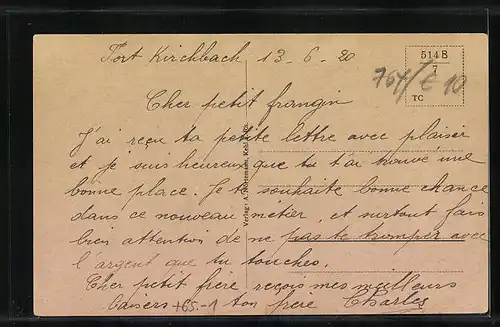 Fort Kirchbach 13-6-20
514 B
7
TC
764/€10
Cher petit frangin
J'ai reçu ta petite lettre avec plaisir
et je suis heureux que tu t'ai trouvé une
bonne place. Je te souhaite bonne chance
dans ce nouveau métier, et surtout fais
bien attention de ne pas te tromper avec
l'argent que tu touches.
Cher petit frère reçois mes meilleurs
baisers ton frère Charles
+65.-
Verlag: A. Kehl